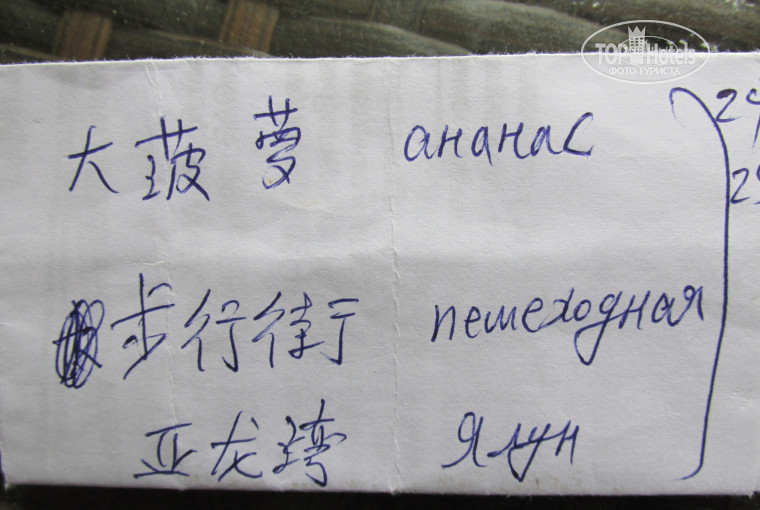 TOPHotels
ФОТО ТУРИСТА
大菠萝 ананас
步行街 пешеходная
亚龙湾 Ялун